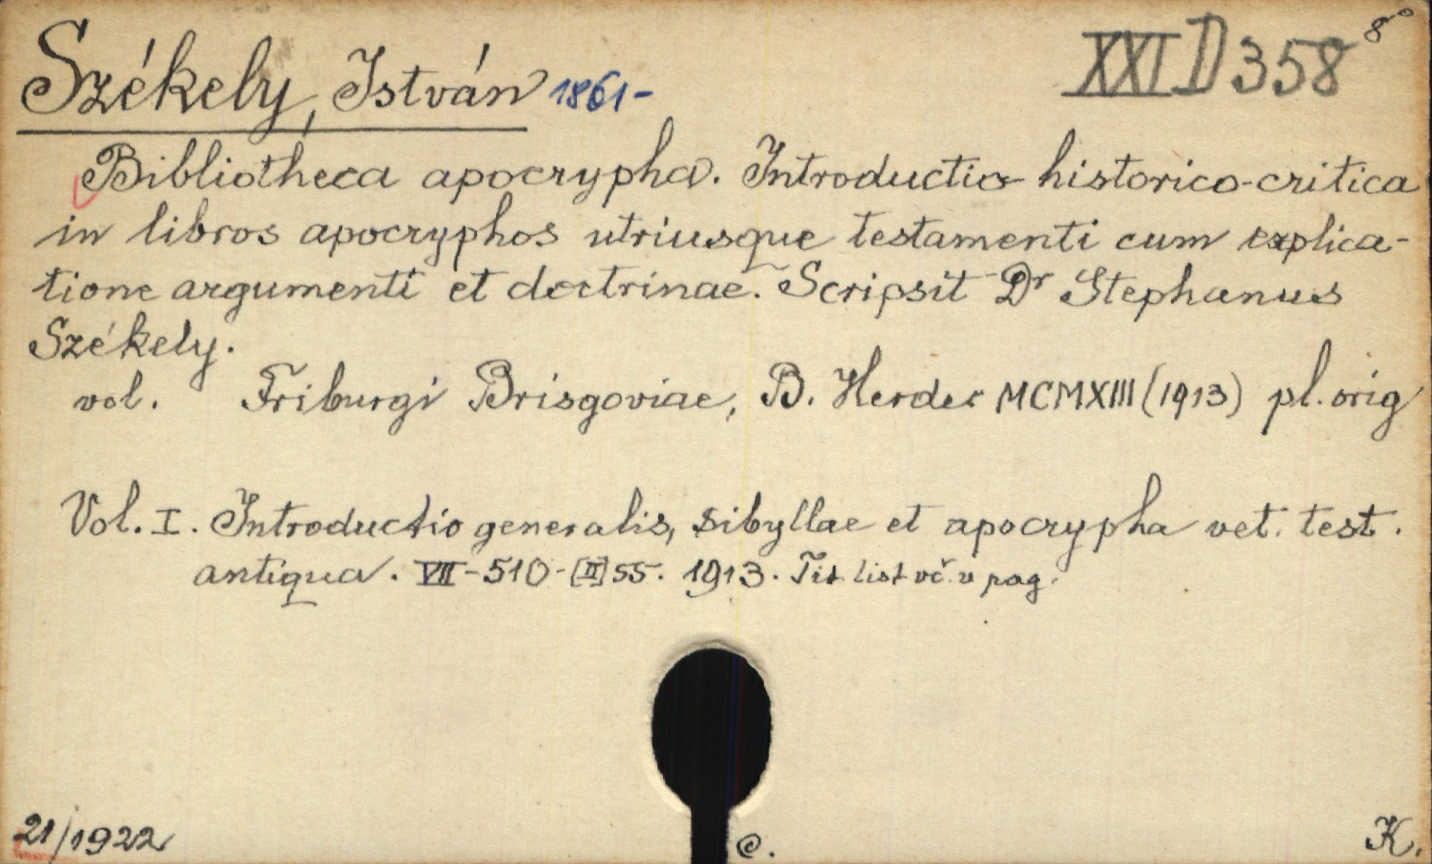 Székely, István 1861-
XXI D 358 8°
Bibliotheca apocrypha. Introductio historico-critica
in libros apocryphos utriusque testamenti cum explica-
tione argumenti et doctrinae. Scripsit Dr Stephanus
Székely.
vol. Friburgi Brisgoviae, B. Herder MCMXIII (1913) pl. orig
Vol. I. Introductio generalis, sibyllae et apocrypha vet. test.
antiqua. VII-510-[II] ss. 1913. Tit list vč. v pag.
21/1922
c.
K.